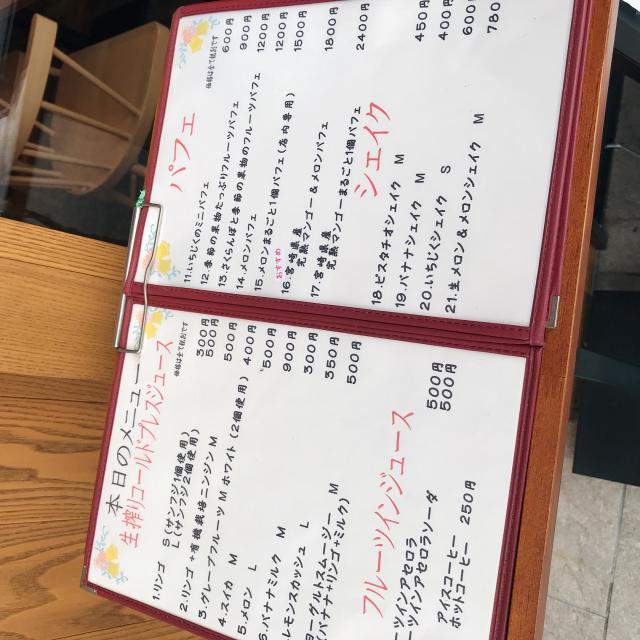 本日のメニュー
生搾りコールドプレスジュース
価格は全て税別です
1.リンゴ S(サンフジ1個使用) 300円
L(サンフジ2個使用) 500円
2.リンゴ+有機栽培ニンジン M 500円
3.グレープフルーツ M ホワイト(2個使用) 400円
4.スイカ M 500円
5.メロン L 900円
6.バナナミルク M 300円
レモンスカッシュ L 350円
ヨーグルトスムージー M 500円
(バナナ+リンゴ+ミルク)
フルーツインジュース
ーツインアセロラ 500円
ーツインアセロラソーダ 500円
アイスコーヒー
ホットコーヒー 250円
パフェ
価格は全て税別です
11.いちじくのミニパフェ 600円
12.季節の果物たっぷりフルーツパフェ 900円
13.さくらんぼと季節の果物のフルーツパフェ 1200円
14.メロンパフェ 1200円
15.メロンまるごと1個パフェ(店内専用) 1500円
おすすめ
16.宮崎県産
完熟マンゴー&メロンパフェ 1800円
17.宮崎県産
完熟マンゴーまるごと1個パフェ 2400円
シェイク
18.ピスタチオシェイク M 450円
19.バナナシェイク M 400円
20.いちじくシェイク S 600円
21.生メロン&メロンシェイク M 780